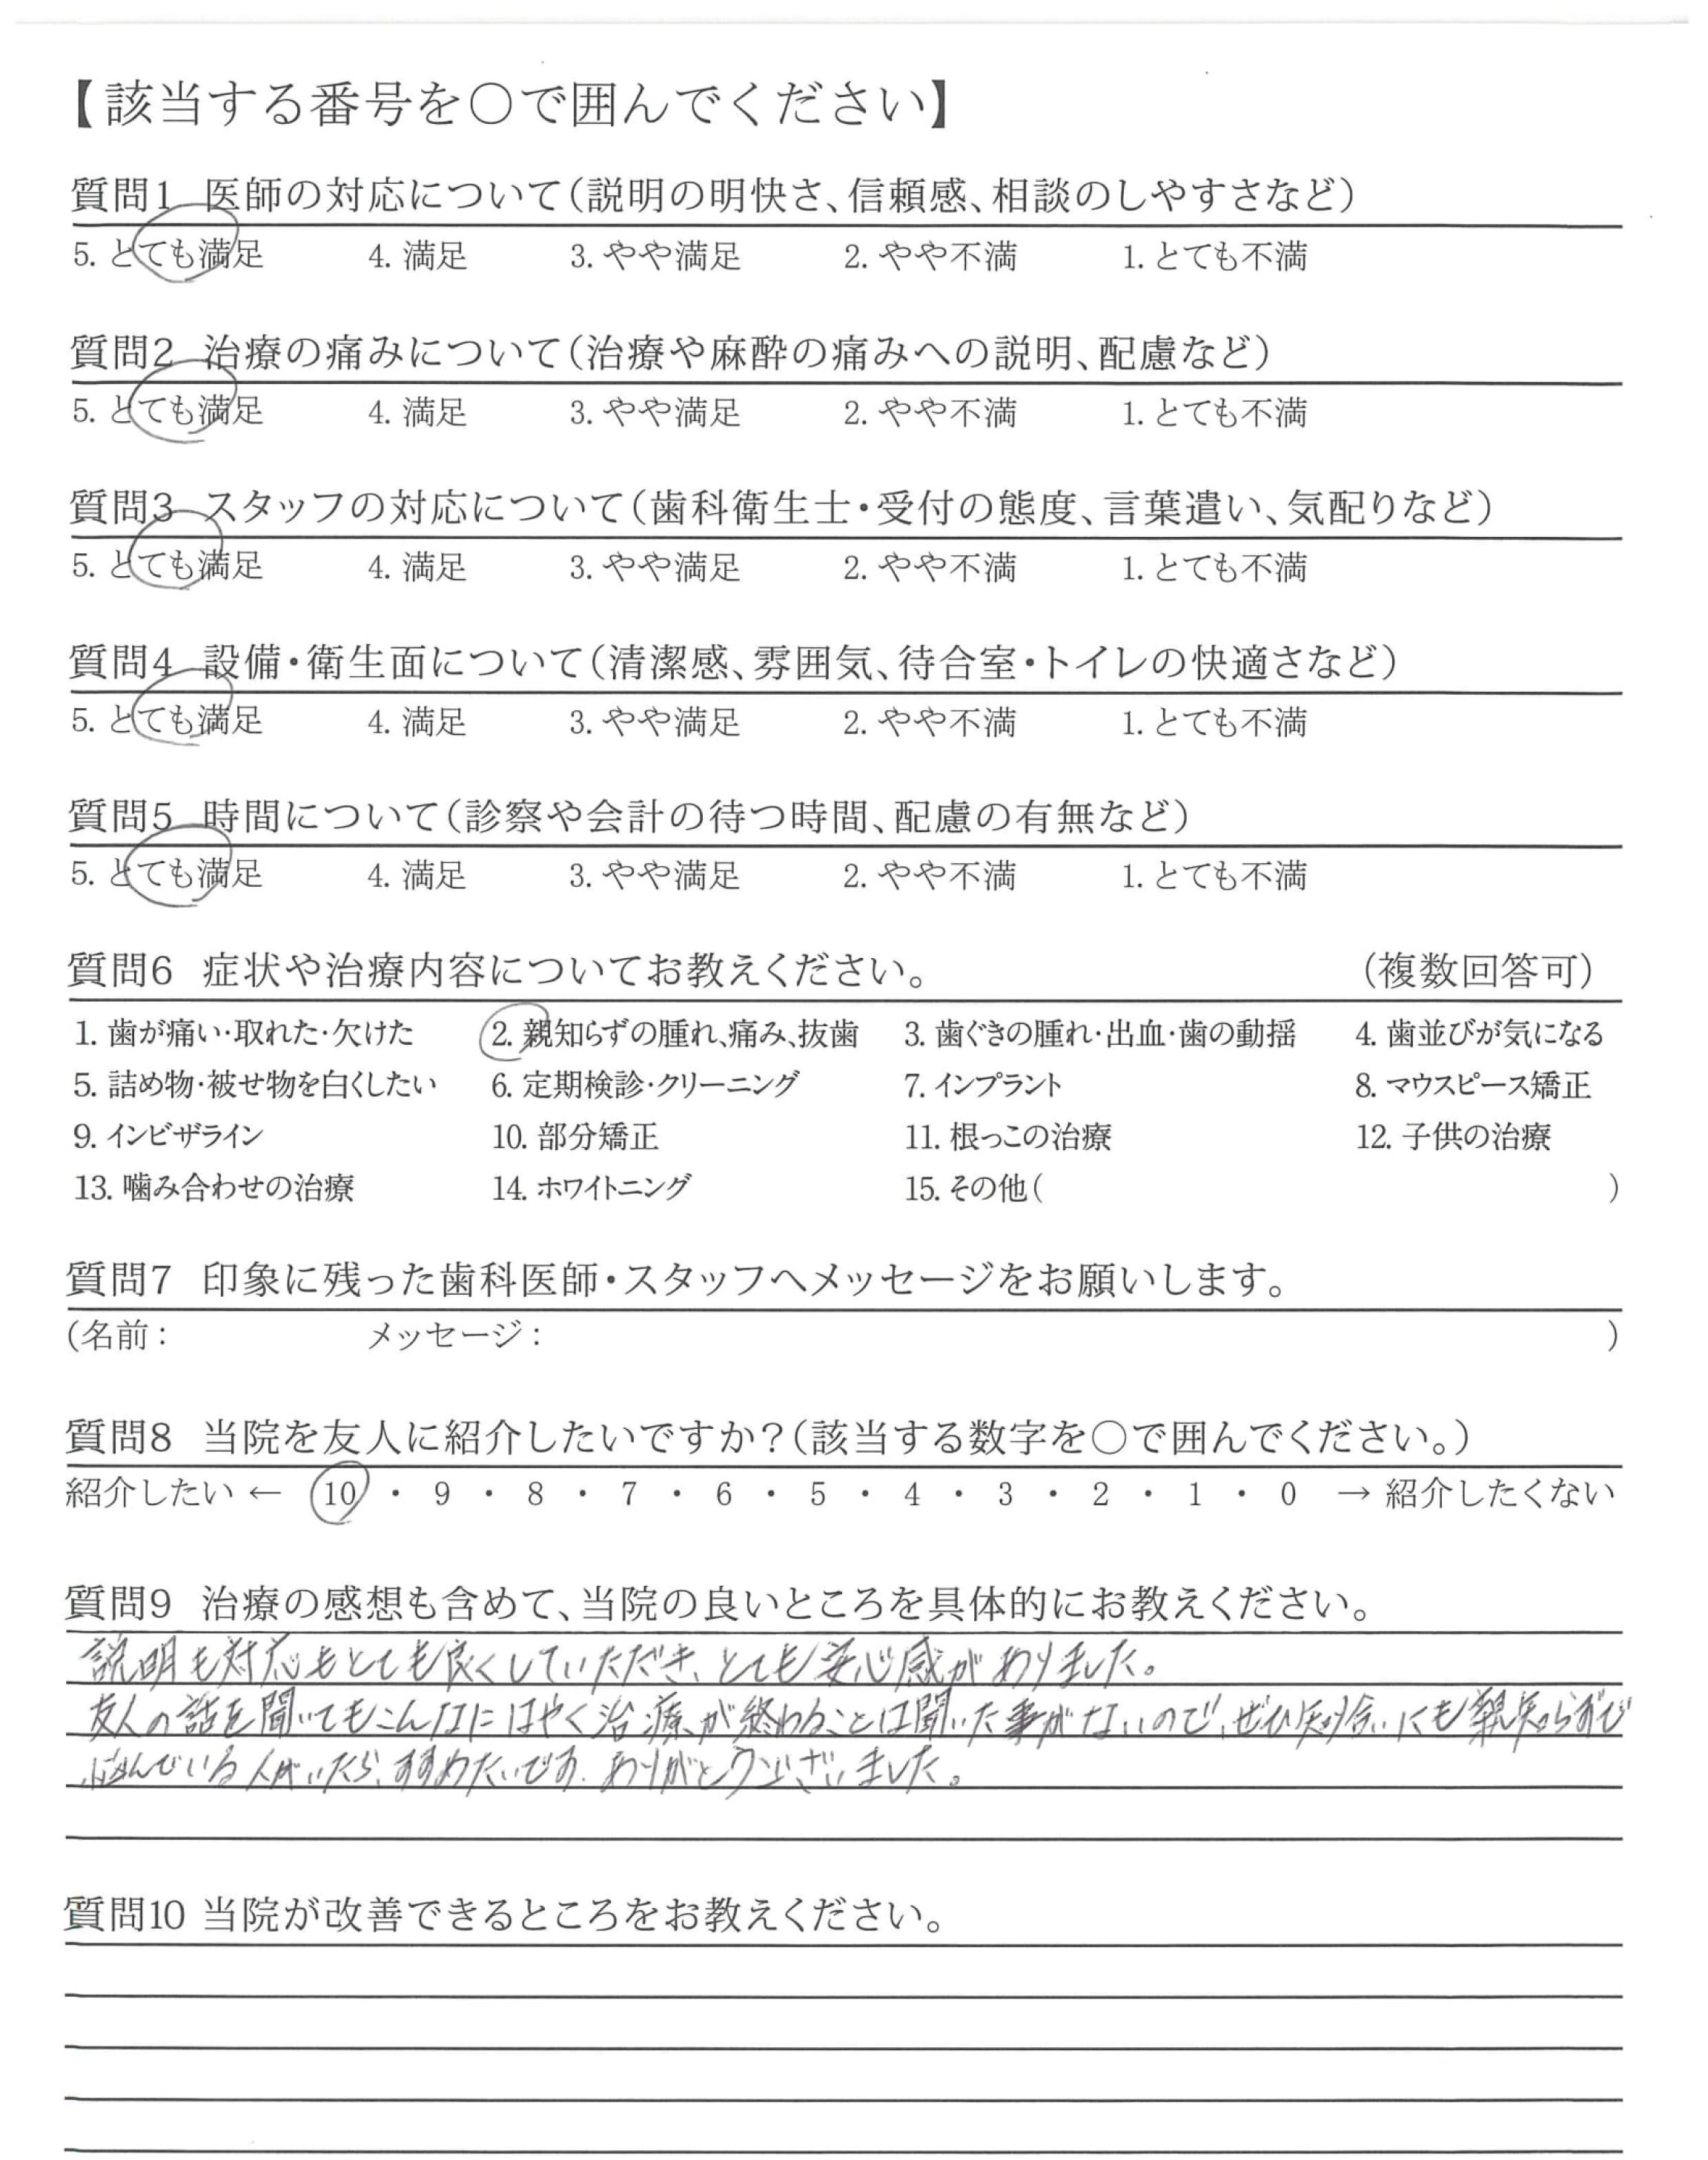 【該当する番号を〇で囲んでください】
質問1 医師の対応について(説明の明快さ、信頼感、相談のしやすさなど)
5. とても満足 4. 満足 3. やや満足 2. やや不満 1. とても不満
質問2 治療の痛みについて(治療や麻酔の痛みへの説明、配慮など)
5. とても満足 4. 満足 3. やや満足 2. やや不満 1. とても不満
質問3 スタッフの対応について(歯科衛生士・受付の態度、言葉遣い、気配りなど)
5. とても満足 4. 満足 3. やや満足 2. やや不満 1. とても不満
質問4 設備・衛生面について(清潔感、雰囲気、待合室・トイレの快適さなど)
5. とても満足 4. 満足 3. やや満足 2. やや不満 1. とても不満
質問5 時間について(診察や会計の待つ時間、配慮の有無など)
5. とても満足 4. 満足 3. やや満足 2. やや不満 1. とても不満
質問6 症状や治療内容についてお教えください。 (複数回答可)
1. 歯が痛い・取れた・欠けた 2. 親知らずの腫れ、痛み、抜歯 3. 歯ぐきの腫れ・出血・歯の動揺 4. 歯並びが気になる
5. 詰め物・被せ物を白くしたい 6. 定期検診・クリーニング 7. インプラント 8. マウスピース矯正
9. インビザライン 10. 部分矯正 11. 根っこの治療 12. 子供の治療
13. 噛み合わせの治療 14. ホワイトニング 15. その他( )
質問7 印象に残った歯科医師・スタッフへメッセージをお願いします。
(名前: メッセージ: )
質問8 当院を友人に紹介したいですか?(該当する数字を〇で囲んでください。)
紹介したい ← 10 ・ 9 ・ 8 ・ 7 ・ 6 ・ 5 ・ 4 ・ 3 ・ 2 ・ 1 ・ 0 → 紹介したくない
質問9 治療の感想も含めて、当院の良いところを具体的にお教えください。
説明も対応もとても良くしていただき、とても安心感がありました。
友人の話を聞いてもこんなにはやく治療が終わることは聞いた事がないので、ぜひ知り合いにも親知らずで
悩んでいる人がいたら、すすめたいです。ありがとうございました。
質問10 当院が改善できるところをお教えください。